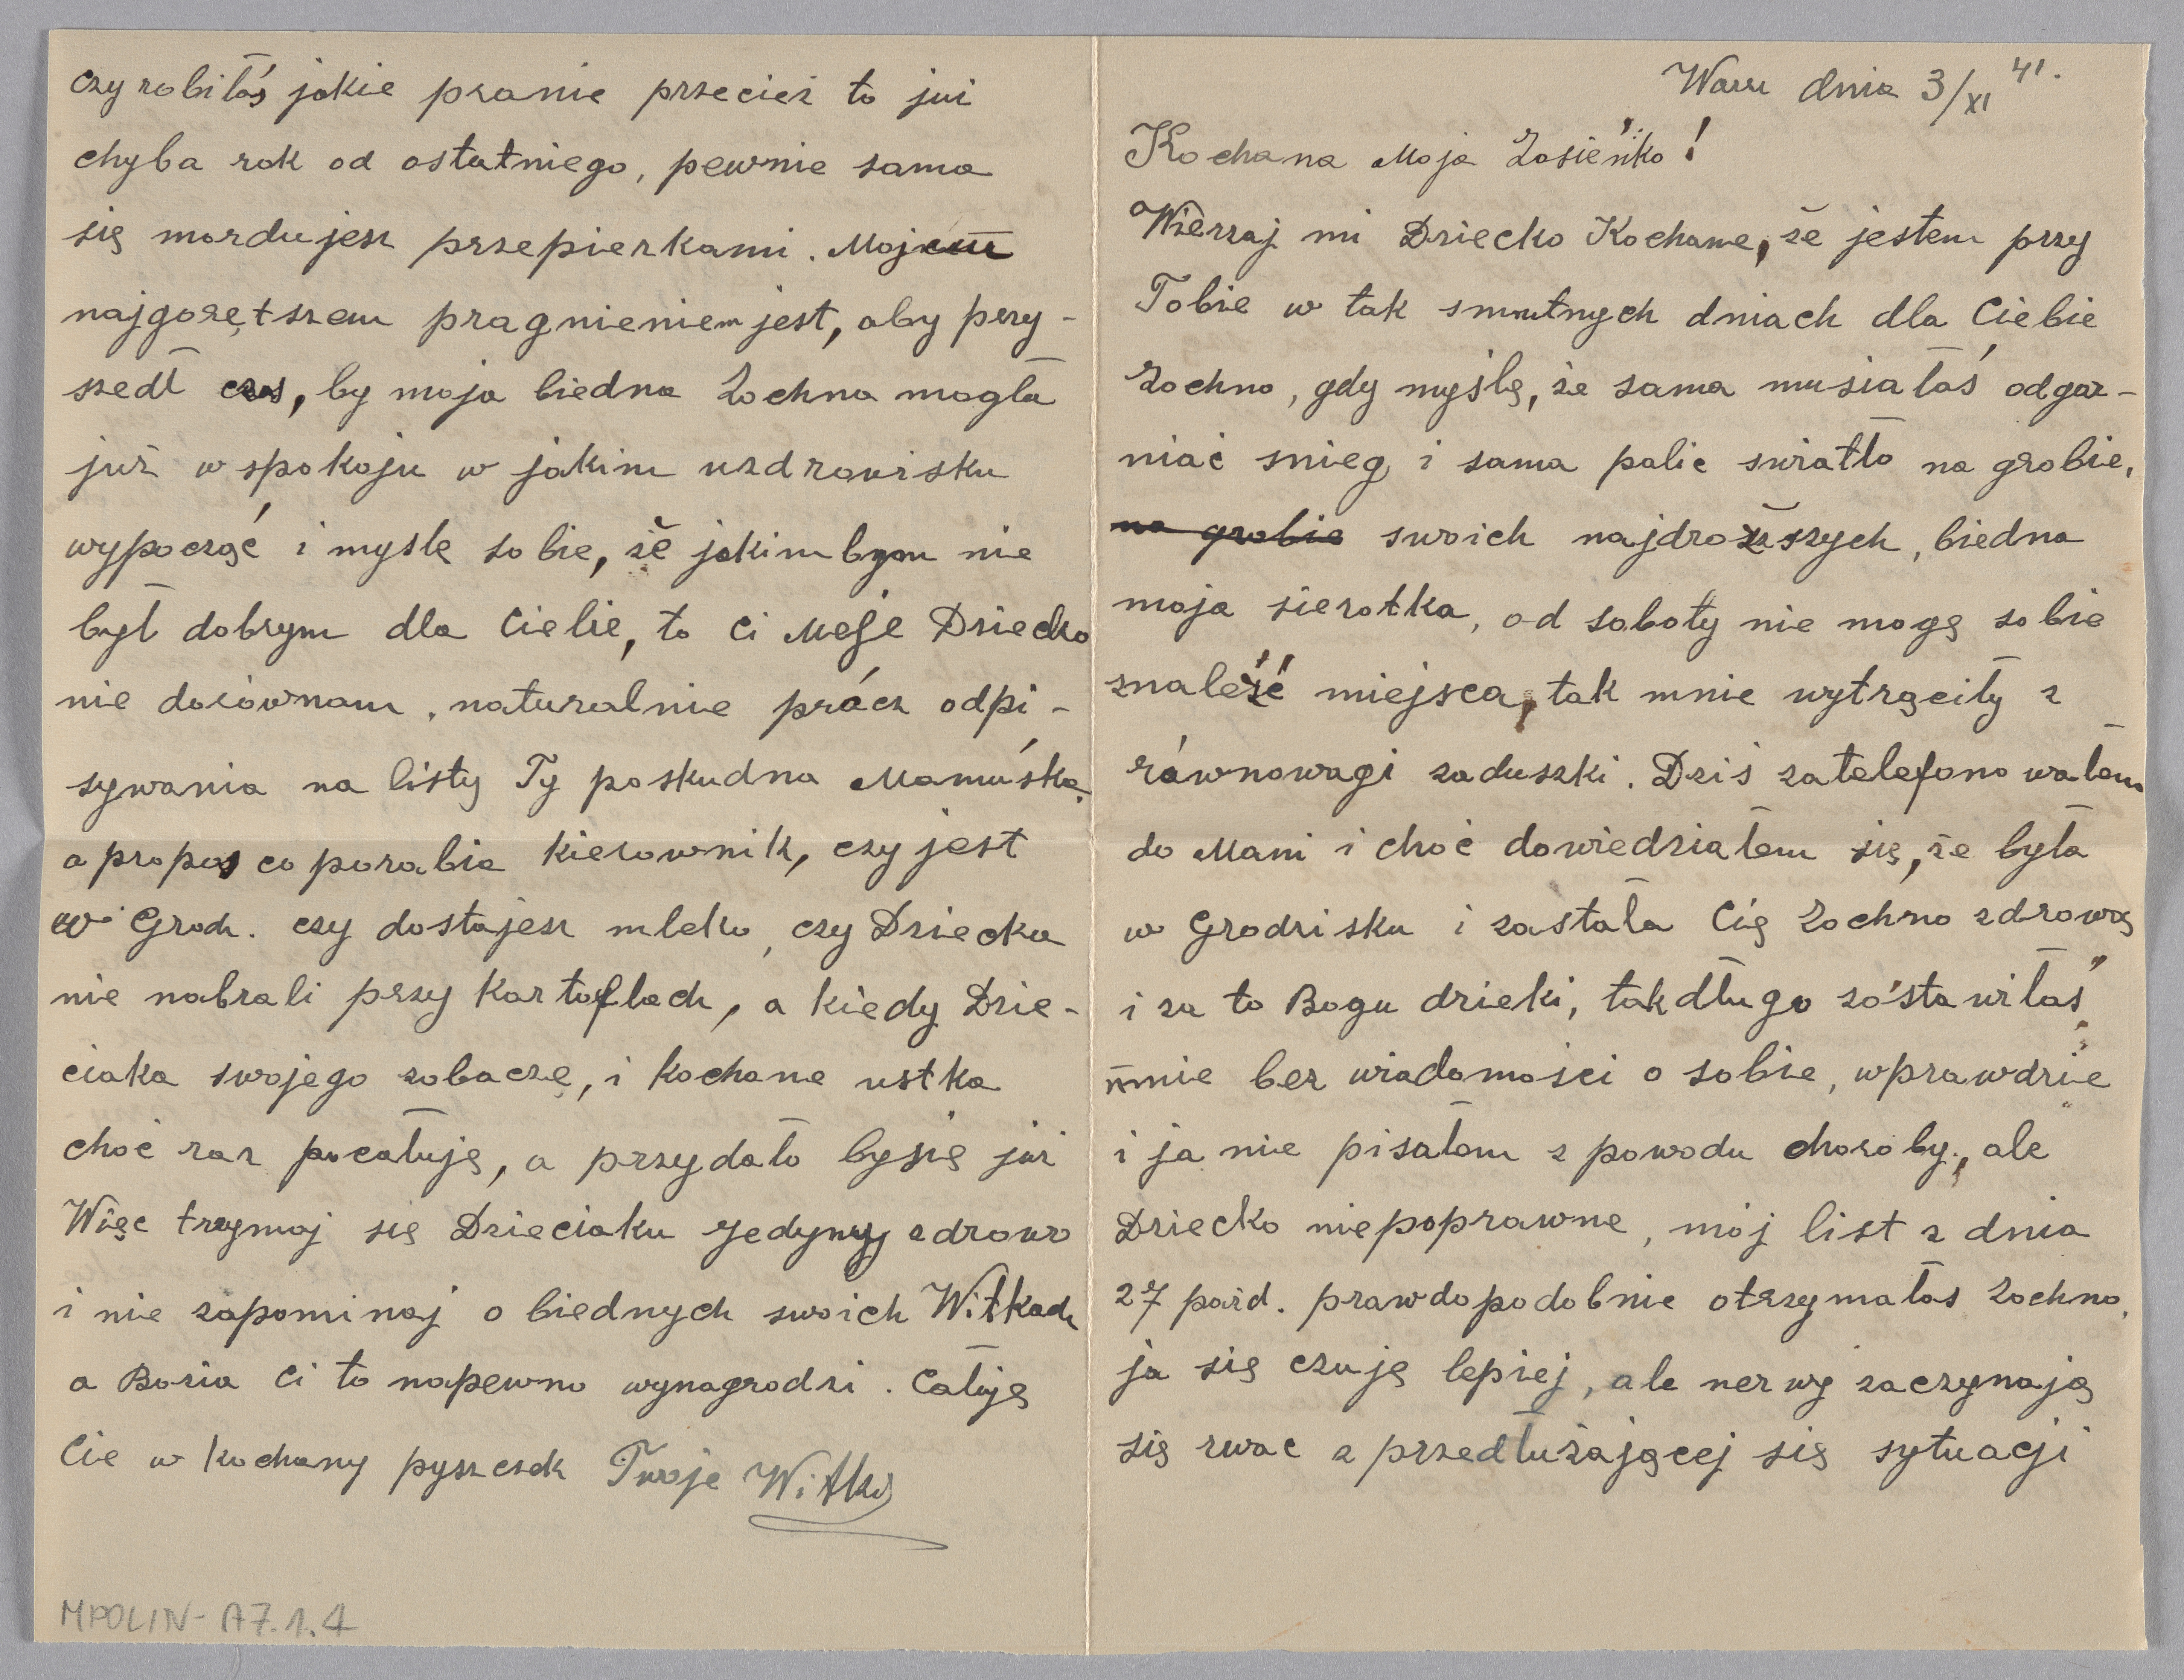 Warsz dnia 3/XI 41.
Kochana Moja Zosieńko!
Wierzaj mi Dziecko Kochane, że jestem przy
Tobie w tak smutnych dniach dla Ciebie
Zochno, gdy myślę, że sama musiałaś odgar-
niać snieg i sama palic swiatło na grobie,
na grobie swoich najdroższych, biedna
moja sierotka, od soboty nie mogę sobie
znaleźć miejsca, tak mnie wytrąciły z
równowagi zaduszki. Dziś zatelefonowałem
do Mani i choć dowiedziałem się, że była
w Grodzisku i zastała Cię Zochno zdrową
i za to Bogu dzieki, tak długo zostawiłaś
mnie bez wiadomości o sobie, wprawdzie
i ja nie pisałem z powodu choroby, ale
Dziecko niepoprawne, mój list z dnia
27 paźd. prawdopodobnie otrzymałas Zochno,
ja się czuję lepiej, ale nerwy zaczynają
się rwac z przedłużającej się sytuacji
czy robiłaś jakie pranie przecież to już
chyba rok od ostatniego, pewnie sama
się mordujesz przepierkami. Mojem
najgorętszem pragnieniem jest, aby przy-
szedł czas, by moja biedna Zochna mogła
już w spokoju w jakim uzdrowisku
wypocząć i myslę sobie, że jakim bym nie
był dobrym dla Ciebie, to Ci Moje Dziecko
nie dorównam, naturalnie prócz odpi-
sywania na listy Ty paskudna Mamuśka.
a propos co porabia kierownik, czy jest
w Grodz. czy dostajesz mleko, czy Dziecka
nie nabrali przy kartoflach, a kiedy Dzie-
ciaka swojego zobaczę, i kochane ustka
choć raz pocałuję, a przydało bysię już
Więc trzymaj się Dzieciaku Jedyny zdrowo
i nie zapominaj o biednych swoich Witkach
a Bozia Ci to napewno wynagrodzi. Całuję
Cie w kochany pyszczek Twoje Witki
MPOLIN-A7.1.4